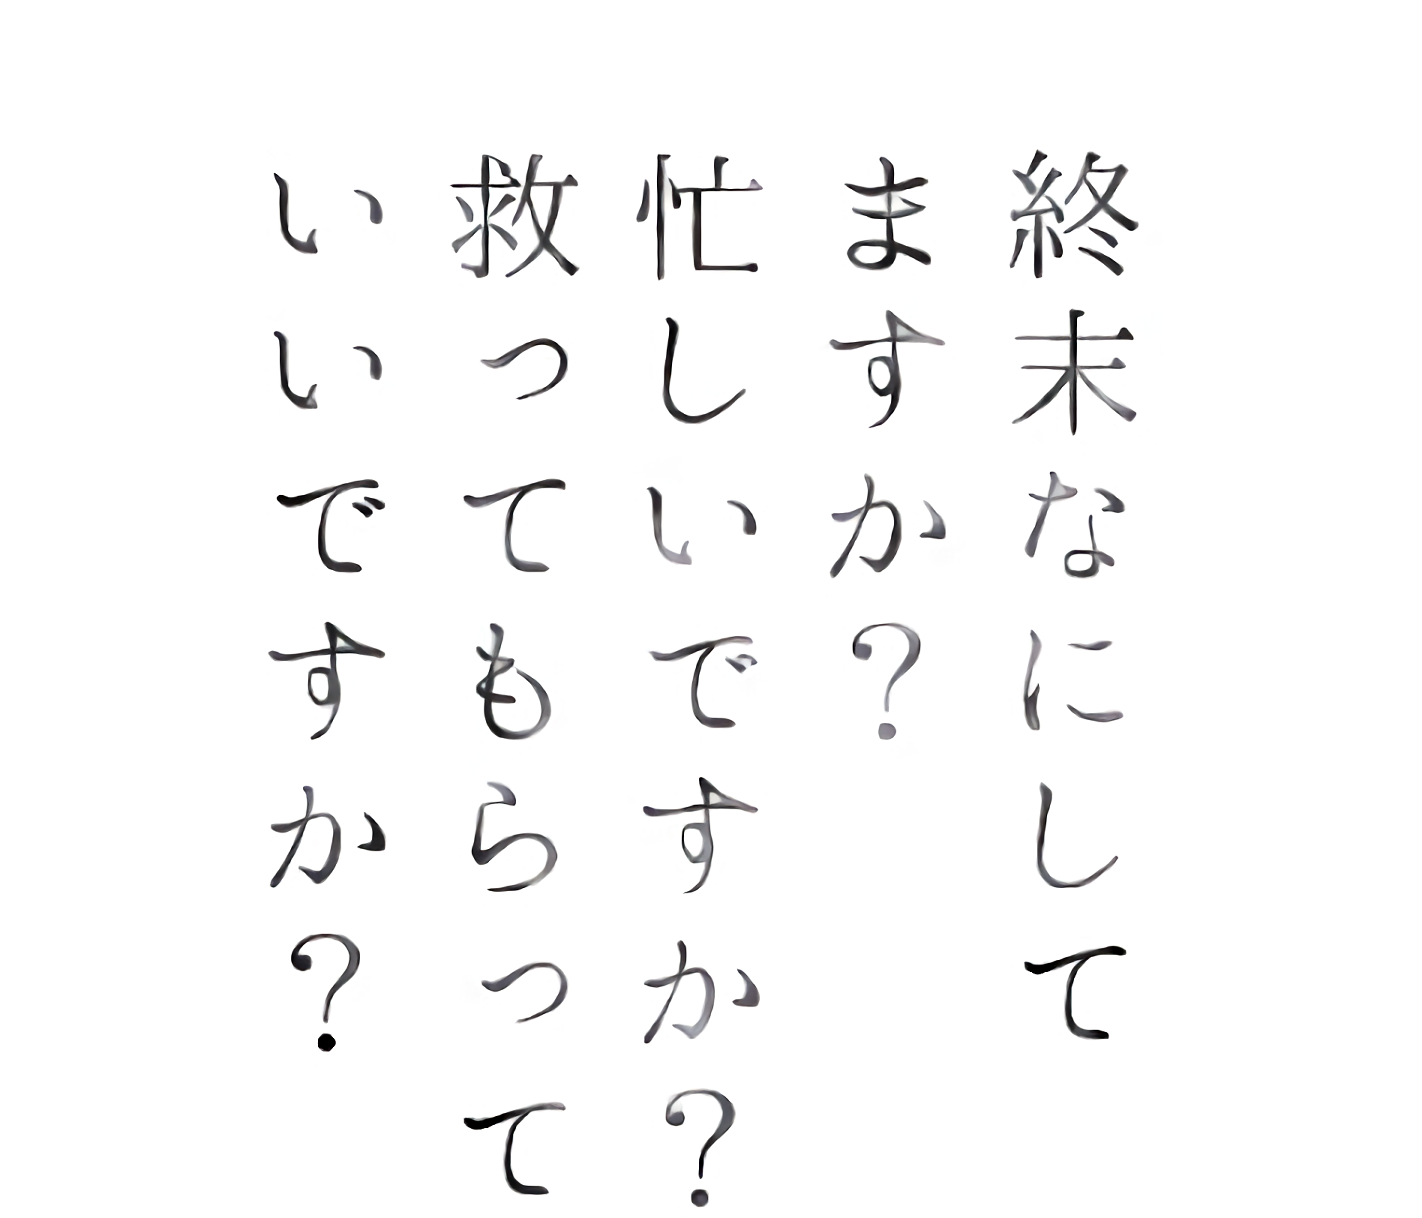 終末なにして
ますか？
忙しいですか？
救ってもらって
いいですか？